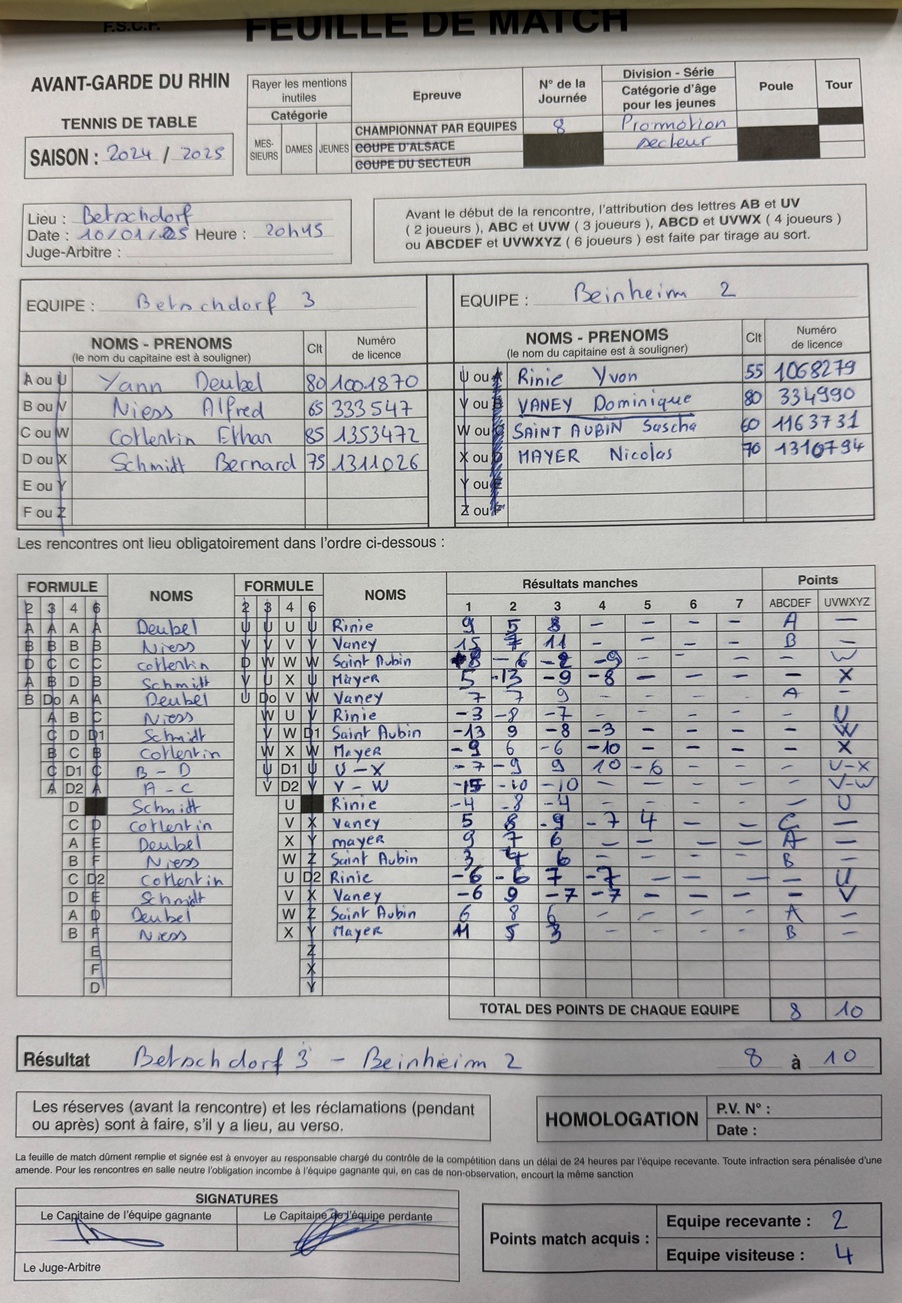 F.S.C.F. FEUILLE DE MATCH
AVANT-GARDE DU RHIN
TENNIS DE TABLE
SAISON : 2024 / 2025
Rayer les mentions inutiles
Catégorie
MES-SIEURS DAMES JEUNES
Epreuve
CHAMPIONNAT PAR EQUIPES
COUPE D'ALSACE
COUPE DU SECTEUR
N° de la Journée
8
Division - Série
Catégorie d'âge pour les jeunes
Promotion
secteur
Poule
Tour
Lieu : Betschdorf
Date : 10/01/25 Heure : 20h45
Juge-Arbitre :
Avant le début de la rencontre, l'attribution des lettres AB et UV
( 2 joueurs ), ABC et UVW ( 3 joueurs ), ABCD et UVWX ( 4 joueurs )
ou ABCDEF et UVWXYZ ( 6 joueurs ) est faite par tirage au sort.
EQUIPE : Betschdorf 3
NOMS - PRENOMS Clt Numéro de licence
(le nom du capitaine est à souligner)
A ou U Yann Deubel 80 1001870
B ou V Niess Alfred 65 333547
C ou W Cottentin Ethan 85 1353472
D ou X Schmitt Bernard 75 1311026
E ou Y
F ou Z
EQUIPE : Beinheim 2
NOMS - PRENOMS Clt Numéro de licence
(le nom du capitaine est à souligner)
U ou A Rinie Yvon 55 1068279
V ou B VANEY Dominique 80 334990
W ou C SAINT AUBIN Sascha 60 1163731
X ou D MAYER Nicolas 70 1310794
Y ou E
Z ou F
Les rencontres ont lieu obligatoirement dans l'ordre ci-dessous :
FORMULE NOMS FORMULE NOMS Résultats manches Points
2 3 4 6 2 3 4 6 1 2 3 4 5 6 7 ABCDEF UVWXYZ
A A A A Deubel U U U U Rinie 9 5 8 - - - - A -
B B B B Niess V V V V Vaney 15 7 11 - - - - B -
D C C C Cottentin D W W W Saint Aubin 8 -6 -2 -9 - - - - W
A B D B Schmitt V U X U Mayer 5 -13 -9 -8 - - - - X
B Do A A Deubel U Do V W Vaney 7 7 9 - - - - A -
A B C Niess W U V Rinie -3 -8 -7 - - - - - U
C D D1 Schmidt V W D1 Saint Aubin -13 9 -8 -3 - - - - W
B C B Cottentin W X W Mayer -9 6 -6 -10 - - - - X
C D1 C B - D U D1 U U - X -7 -9 9 10 -6 - - - U-X
A D2 A A - C V D2 V V - W -15 -10 -10 - - - - - V-W
D Schmidt U Rinie -4 -8 -4 - - - - - U
C D Cottentin V X Vaney 5 8 -9 -7 4 - - C -
A E Deubel X Y mayer 9 7 6 - - - - A -
B F Niess W Z Saint Aubin 3 4 6 - - - - B -
C D2 Cottentin U D2 Rinie -6 -6 7 -7 - - - - U
D E Schmidt V X Vaney -6 9 -7 -7 - - - - V
A D Deubel W Z Saint Aubin 6 8 6 - - - - A -
B F Niess X Y Mayer 11 5 3 - - - - B -
E Z
F X
D Y
TOTAL DES POINTS DE CHAQUE EQUIPE 8 10
Résultat Betschdorf 3 - Beinheim 2 8 à 10
Les réserves (avant la rencontre) et les réclamations (pendant
ou après) sont à faire, s'il y a lieu, au verso.
HOMOLOGATION
P.V. N° :
Date :
La feuille de match dûment remplie et signée est à envoyer au responsable chargé du contrôle de la compétition dans un délai de 24 heures par l'équipe recevante. Toute infraction sera pénalisée d'une
amende. Pour les rencontres en salle neutre l'obligation incombe à l'équipe gagnante qui, en cas de non-observation, encourt la même sanction
SIGNATURES
Le Capitaine de l'équipe gagnante Le Capitaine de l'équipe perdante
Le Juge-Arbitre
Points match acquis :
Equipe recevante : 2
Equipe visiteuse : 4